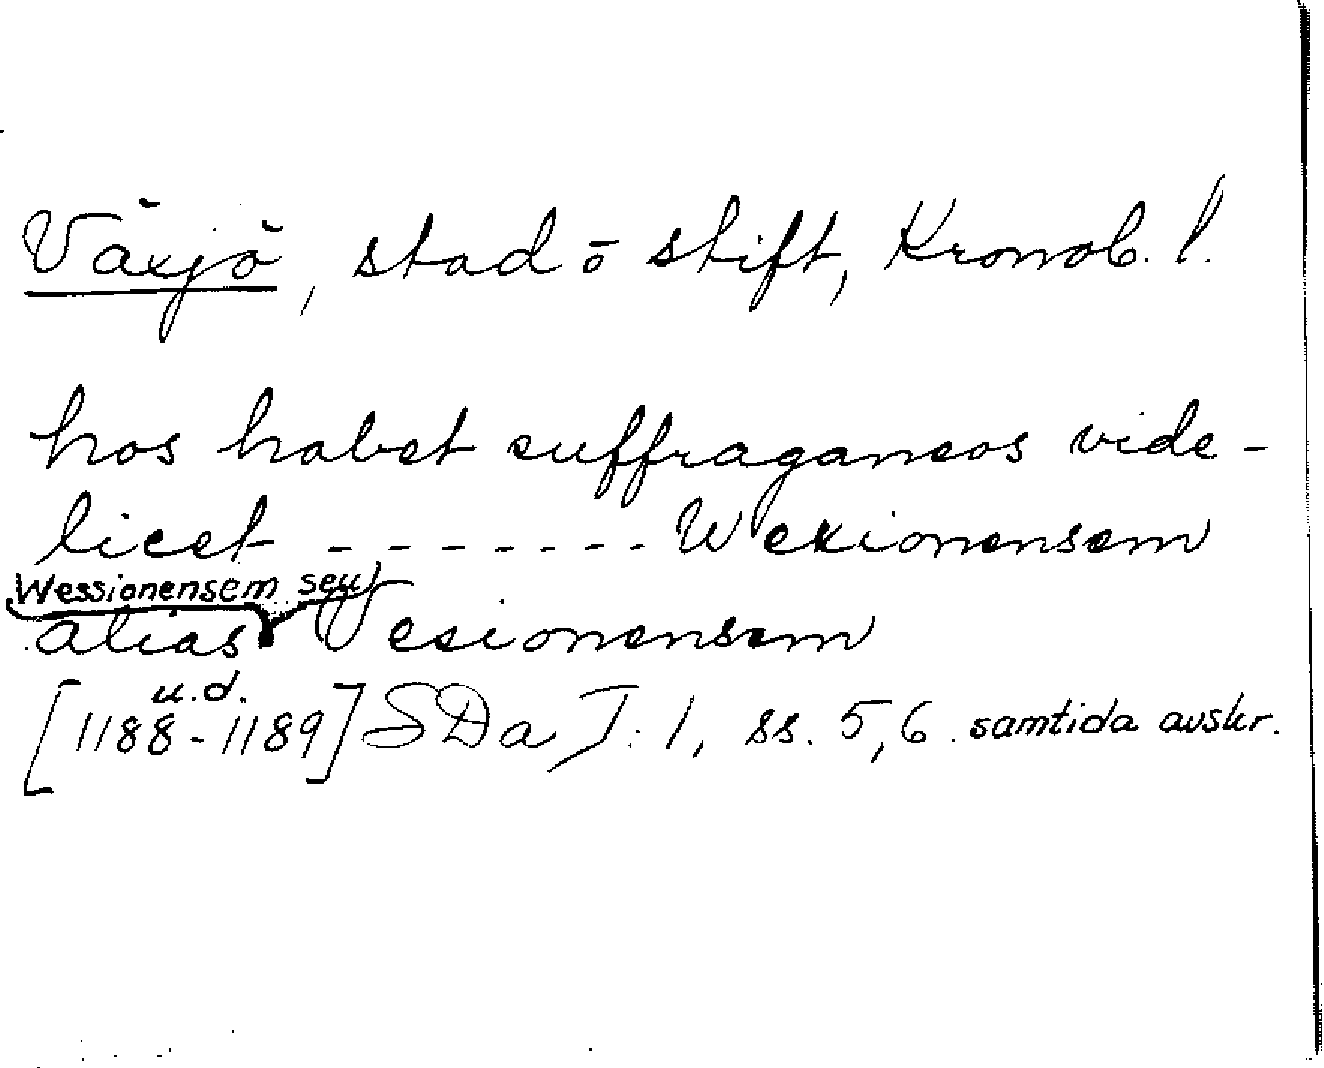 Växjö, stad o stift, Kronob. l.
hos habet suffraganeos vide-
licet - - - - - - - Wexionensem
Wessionensem seu
alias Vesionensem
u.d.
[1188-1189] SDa I: 1, ss. 5,6. samtida avskr.